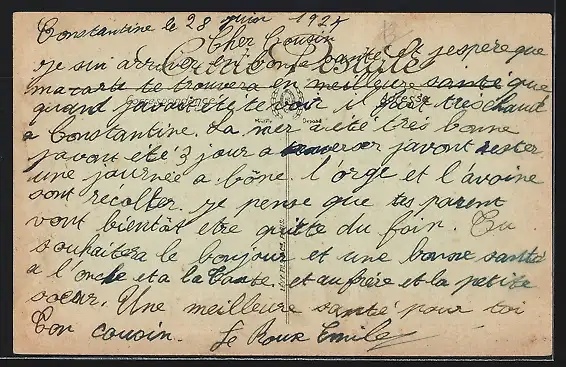 Constantine le 28 Juin 1924
Cher Cousin
Je sui arriver en bonne santé et j'espère que
Carte Postale
ma carte te trouvera en meilleure santé que
Correspondance
quand j'avait été te voir il fait tres chaud
a Constantine. La mer a été très bonne
javont été 3 jour a traverser javont rester
une journée a bône. l'orge et l'avoine
sont récolter. Je pense que tes parent
vont bientôt etre quitte du foin. Tu
souhaitera le bonjour et une bonne santé
a l'oncle et a la tante. et au frère et la petite
soeur. Une meilleure santé pour toi
Ton cousin. Le Roux Emile